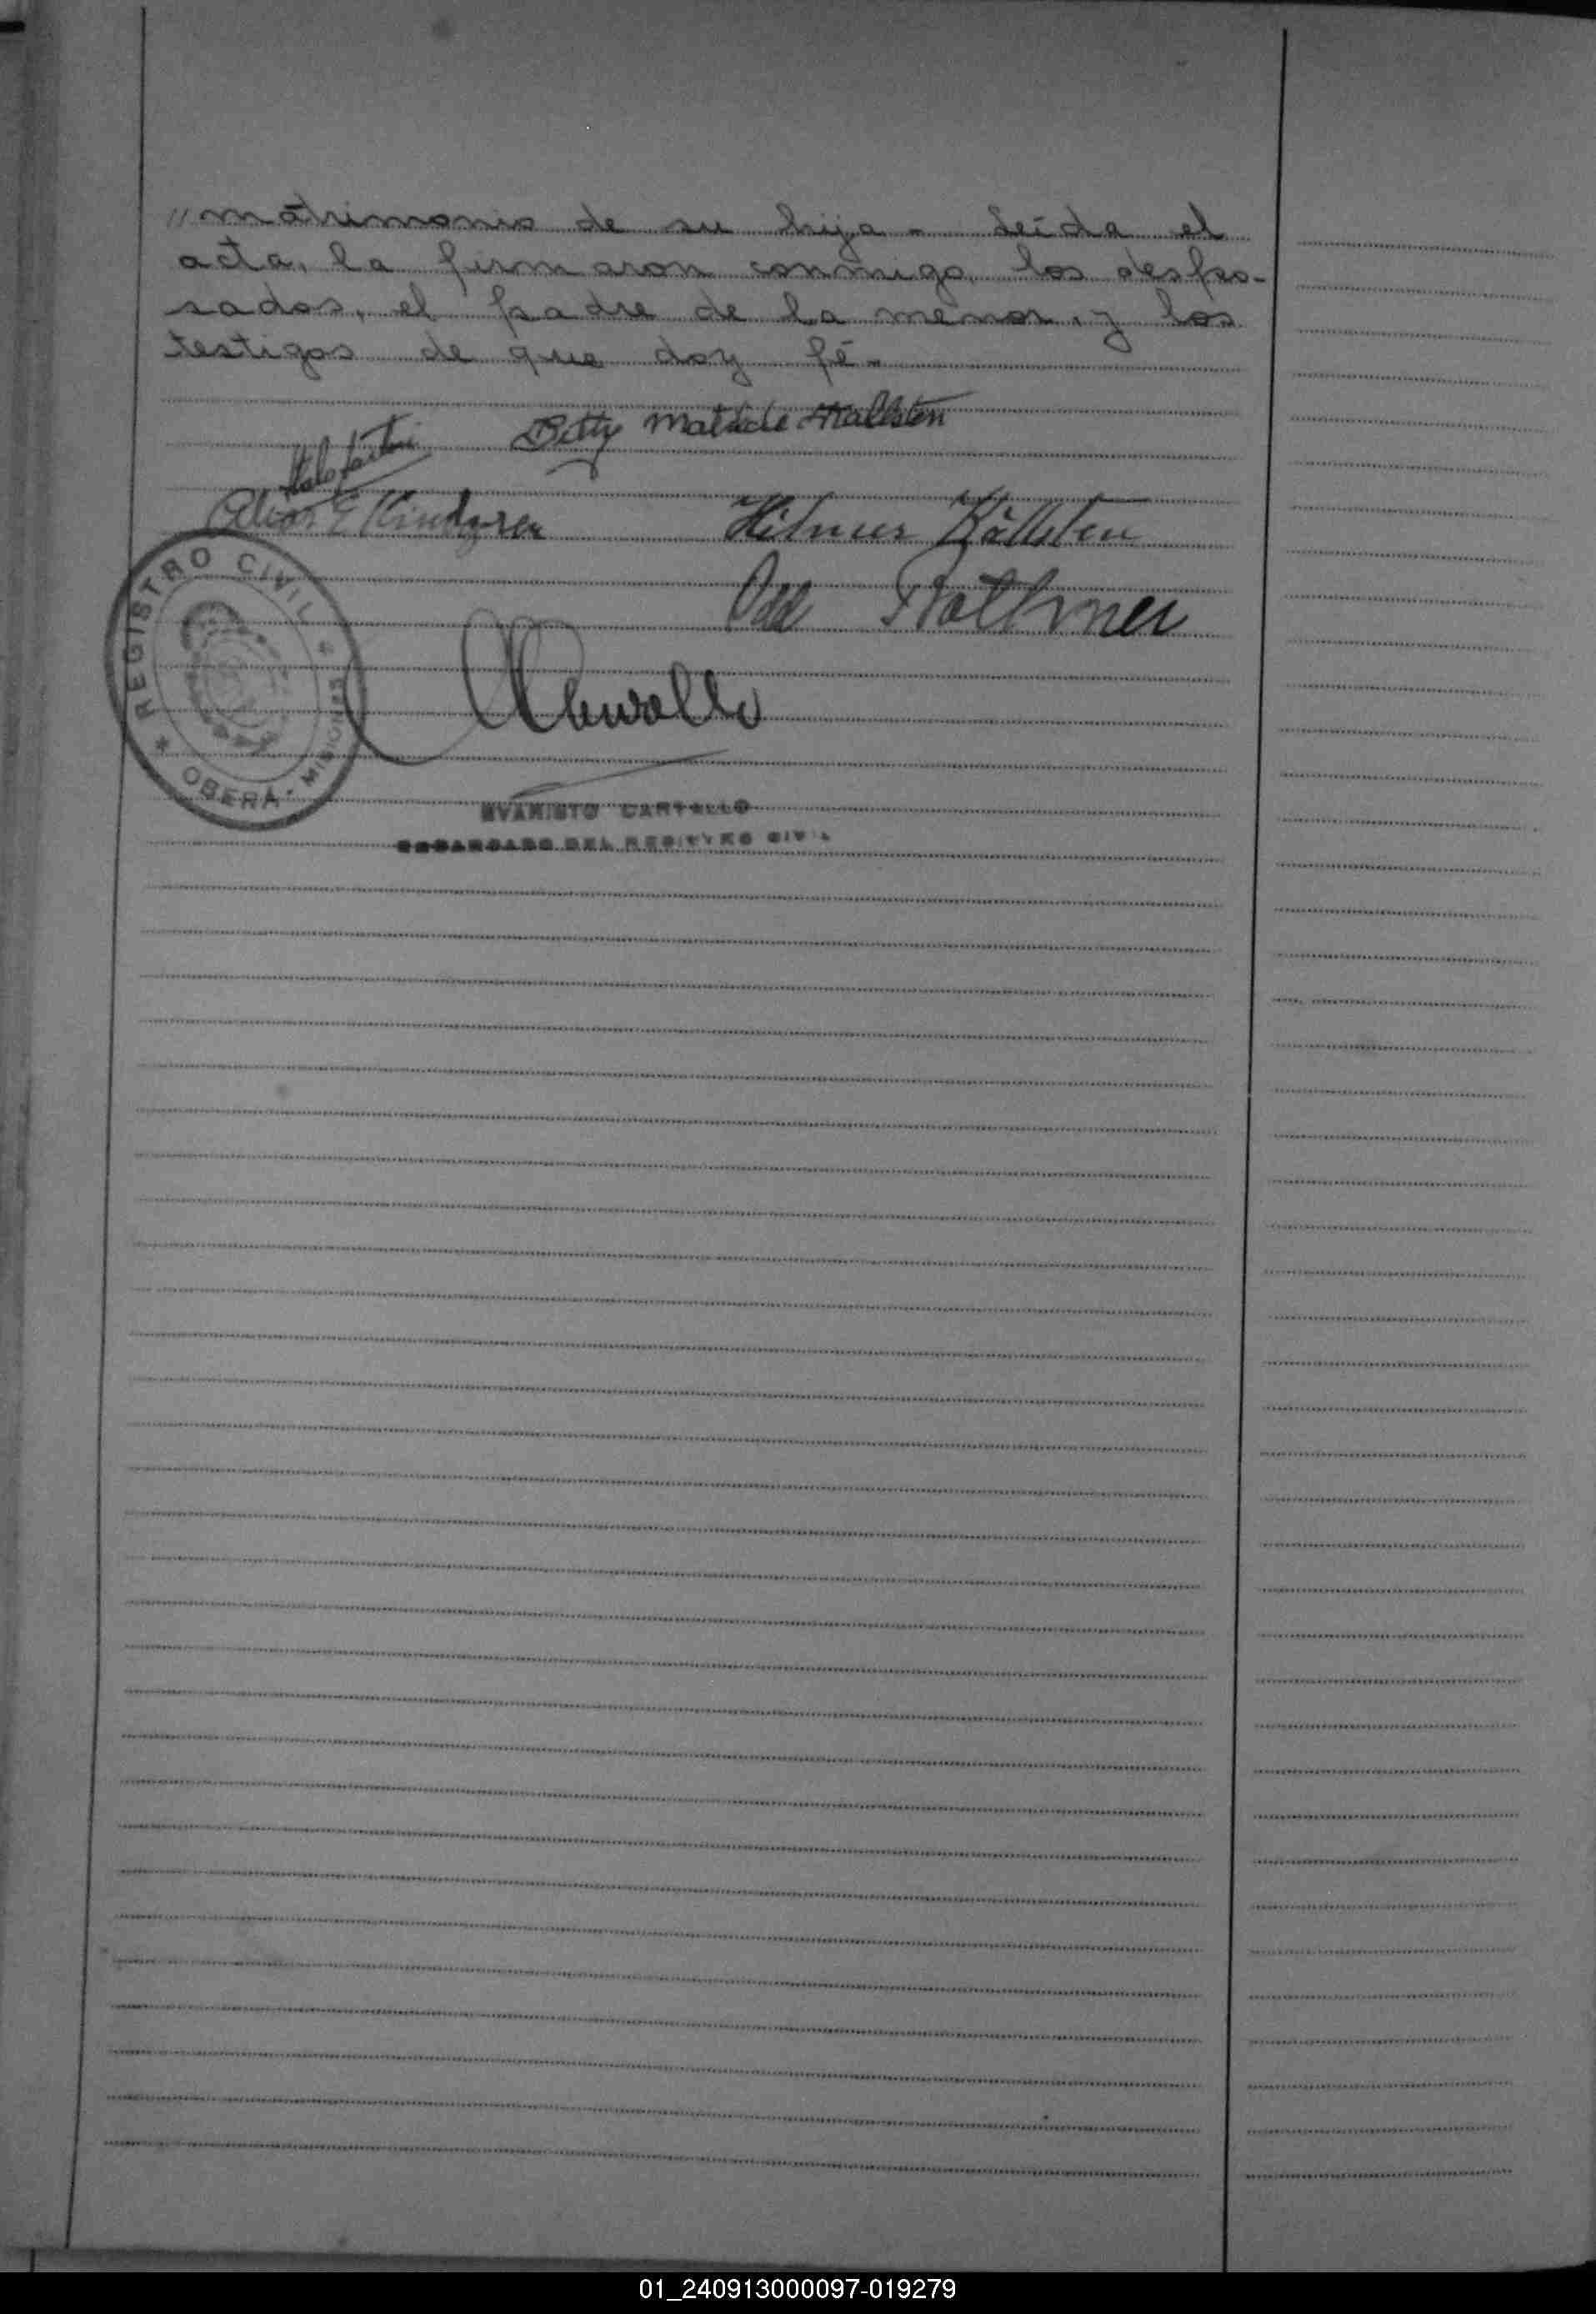 // matrimonio de su hija - Leída el
acta, la firmaron conmigo, los despo-
sados, el padre de la menor, y los
testigos de que doy fé-
Betty Matilde Hallsten
E Kindgren
Hilmer Hållsten
Odd
REGISTRO CIVIL
OBERA - MISIONES
EVARISTO CARVALLO
ENCARGADO DEL REGISTRO CIVIL
01_240913000097-019279